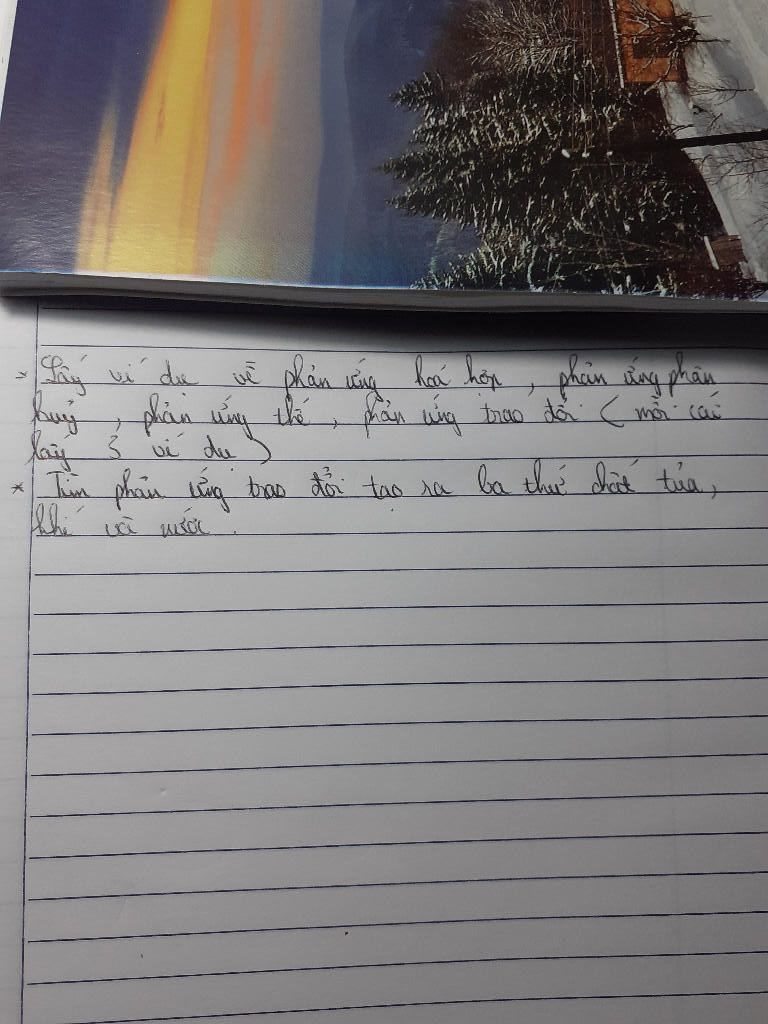 Lấy ví dụ về phản ứng hoá hợp, phản ứng phân
huỷ, phản ứng thế, phản ứng trao đổi (mỗi cái
lấy 3 ví dụ)
* Tìm phản ứng trao đổi tạo ra ba thứ chất tủa,
khí và nước.